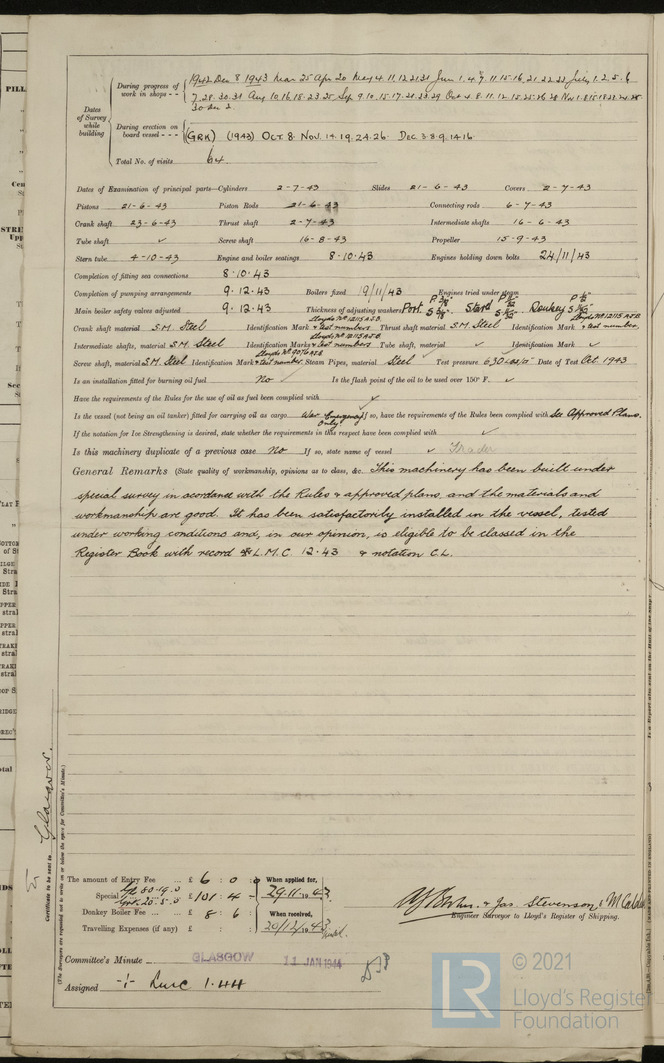 Dates of Survey while building
During progress of work in shops - - 1942 Dec 8 1943 Mar 25 Apr 20 May 4. 11. 12. 21. 31 Jun 1. 4. 9. 11. 15. 16. 21. 22. 23 July 1. 2. 5. 6
7. 28. 30. 31 Aug 10. 16. 18. 23. 25. Sep 9. 10. 15. 17. 21. 23. 29 Oct 4. 8. 11. 12. 15. 25. 26. 28 Nov
30 Dec 2.
During erection on board vessel - - - (GRK) (1943) OCT. 8. NOV. 14. 19. 24. 26. DEC. 3. 8. 9. 14. 16.
Total No. of visits 64
Dates of Examination of principal parts—Cylinders 2-7-43 Slides 21-6-43 Covers 2-7-43
Pistons 21-6-43 Piston Rods 21-6-43 Connecting rods 6-7-43
Crank shaft 23-6-43 Thrust shaft 2-7-43 Intermediate shafts 16-6-43
Tube shaft ✓ Screw shaft 16-8-43 Propeller 15-9-43
Stern tube 4-10-43 Engine and boiler seatings 8.10.43 Engines holding down bolts 24/11/43
Completion of fitting sea connections 8.10.43
Completion of pumping arrangements 9.12.43 Boilers fixed 19/11/43 Engines tried under steam
Main boiler safety valves adjusted 9.12.43 Thickness of adjusting washers Port P 3/8" Starb P Donkey P
Crank shaft material S.M. Steel Identification Mark Lloyds No. 12115 A.J.B. & test numbers Thrust shaft material S.M. Steel Identification Mark Lloyds No. 12115 A.J.B. & test number.
Intermediate shafts, material S.M. Steel Identification Marks Lloyds No. 12115 A.J.B. & test numbers Tube shaft, material ✓ Identification Mark ✓
Screw shaft, material S.M. Steel Identification Mark Lloyds No. 9076 A.J.B. & test number. Steam Pipes, material Steel Test pressure 630 lbs/□" Date of Test Oct. 1943
Is an installation fitted for burning oil fuel No Is the flash point of the oil to be used over 150° F. ✓
Have the requirements of the Rules for the use of oil as fuel been complied with ✓
Is the vessel (not being an oil tanker) fitted for carrying oil as cargo War Emergency Only If so, have the requirements of the Rules been complied with See Approved Plans.
If the notation for Ice Strengthening is desired, state whether the requirements in this respect have been complied with ✓
Is this machinery duplicate of a previous case No If so, state name of vessel ✓
General Remarks (State quality of workmanship, opinions as to class, &c. This machinery has been built under
special survey in accordance with the Rules & approved plans, and the materials and
workmanship are good. It has been satisfactorily installed in the vessel, tested
under working conditions and, in our opinion, is eligible to be classed in the
Register Book with record of L.M.C. 12.43 & notation C.L.
Certificate to be sent to Glasgow.
(The Surveyors are requested not to write on or below the space for Committee's Minute.)
The amount of Entry Fee ... £ 6 : 0 : 0 When applied for,
Special £ 101 : 4 : - 29.11.1943
Gls 80.19.0
Grk 20.5.0
Donkey Boiler Fee ... £ 8 : 6 : When received,
Travelling Expenses (if any) £ : : 20/12/1943
Jas. Stevenson &
Engineer Surveyor to Lloyd's Register of Shipping.
Committee's Minute GLASGOW 11 JAN 1944
Assigned + LMC 1.44
LR
© 2021
Lloyd's Register
Foundation